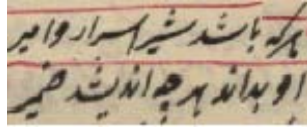 هرکه باشد شیر اسرار و امیر
او بداند هر چه اندیشد ضمیر